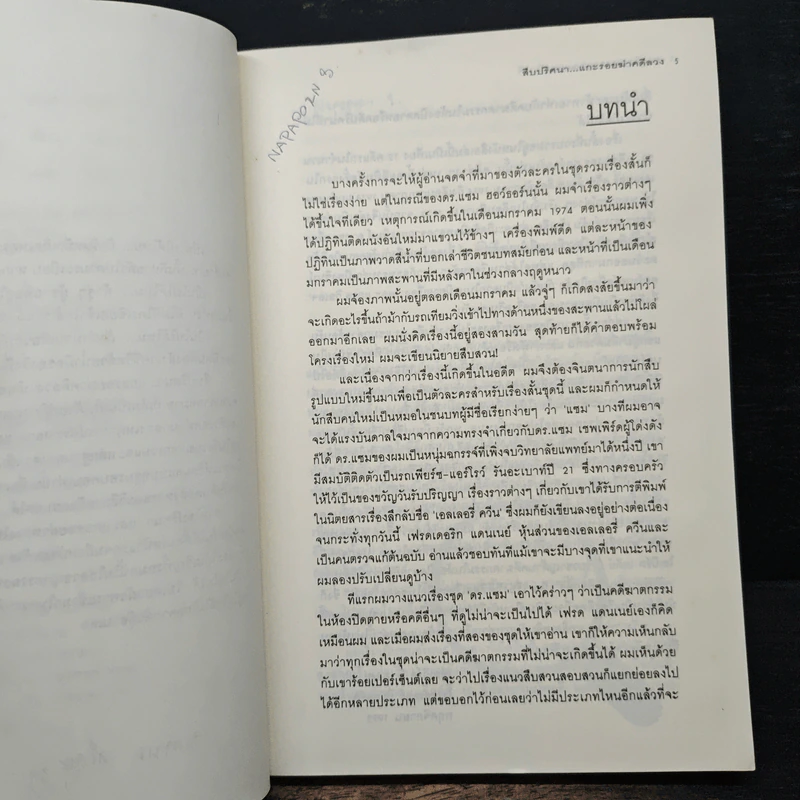 สืบปริศนา...แกะรอยฆ่าคดีลวง 5
NAPAPOZN
บทนำ
บางครั้งการจะให้ผู้อ่านจดจำที่มาของตัวละครในชุดรวมเรื่องสั้นก็
ไม่ใช่เรื่องง่าย แต่ในกรณีของดร.แซม ฮอว์ธอร์นนั้น ผมจำเรื่องราวต่างๆ
ได้ขึ้นใจทีเดียว เหตุการณ์เกิดขึ้นในเดือนมกราคม 1974 ตอนนั้นผมเพิ่ง
ได้ปฏิทินติดผนังอันใหม่มาแขวนไว้ข้างๆ เครื่องพิมพ์ดีด แต่ละหน้าของ
ปฏิทินเป็นภาพวาดสีน้ำที่บอกเล่าชีวิตชนบทสมัยก่อน และหน้าที่เป็นเดือน
มกราคมเป็นภาพสะพานที่มีหลังคาในช่วงกลางฤดูหนาว
ผมจ้องภาพนั้นอยู่ตลอดเดือนมกราคม แล้วจู่ๆ ก็เกิดสงสัยขึ้นมาว่า
จะเกิดอะไรขึ้นถ้าม้ากับรถเทียมวิ่งเข้าไปทางด้านหนึ่งของสะพานแล้วไม่โผล่
ออกมาอีกเลย ผมนั่งคิดเรื่องนี้อยู่สองสามวัน สุดท้ายก็ได้คำตอบพร้อม
โครงเรื่องใหม่ ผมจะเขียนนิยายสืบสวน!
และเนื่องจากว่าเรื่องนี้เกิดขึ้นในอดีต ผมจึงต้องจินตนาการนักสืบ
รูปแบบใหม่ขึ้นมาเพื่อเป็นตัวละครสำหรับเรื่องสั้นชุดนี้ และผมก็กำหนดให้
นักสืบคนใหม่เป็นหมอในชนบทผู้มีชื่อเรียกง่ายๆ ว่า 'แซม' บางทีผมอาจ
จะได้แรงบันดาลใจมาจากความทรงจำเกี่ยวกับดร.แซม เชพเพิร์ดผู้โด่งดัง
ก็ได้ ดร.แซมของผมเป็นหนุ่มฉกรรจ์ที่เพิ่งจบวิทยาลัยแพทย์มาได้หนึ่งปี เขา
มีสมบัติติดตัวเป็นรถเพียร์ซ-แอร์โรว์ รันอะเบาท์ปี 21 ซึ่งทางครอบครัว
ให้ไว้เป็นของขวัญวันรับปริญญา เรื่องราวต่างๆ เกี่ยวกับเขาได้รับการตีพิมพ์
ในนิตยสารเรื่องลึกลับชื่อ 'เอลเลอรี่ ควีน' ซึ่งผมก็ยังเขียนลงอยู่อย่างต่อเนื่อง
จนกระทั่งทุกวันนี้ เฟรดเดอริก แดนเนย์ หุ้นส่วนของเอลเลอรี่ ควีนและ
เป็นคนตรวจแก้ต้นฉบับ อ่านแล้วชอบทันทีแม้เขาจะมีบางจุดที่เขาแนะนำให้
ผมลองปรับเปลี่ยนดูบ้าง
ทีแรกผมวางแนวเรื่องชุด 'ดร.แซม' เอาไว้คร่าวๆ ว่าเป็นคดีฆาตกรรม
ในห้องปิดตายหรือคดีอื่นๆ ที่ดูไม่น่าจะเป็นไปได้ เฟรด แดนเนย์เองก็คิด
เหมือนผม และเมื่อผมส่งเรื่องที่สองของชุดให้เขาอ่าน เขาก็ให้ความเห็นกลับ
มาว่าทุกเรื่องในชุดน่าจะเป็นคดีฆาตกรรมที่ไม่น่าจะเกิดขึ้นได้ ผมเห็นด้วย
กับเขาร้อยเปอร์เซ็นต์เลย จะว่าไปเรื่องแนวสืบสวนสอบสวนก็แยกย่อยลงไป
ได้อีกหลายประเภท แต่ขอบอกไว้ก่อนเลยว่าไม่มีประเภทไหนอีกแล้วที่จะ